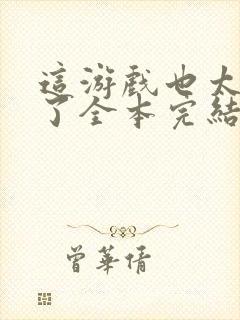 這游戲也太
了全本完結
曾華倩